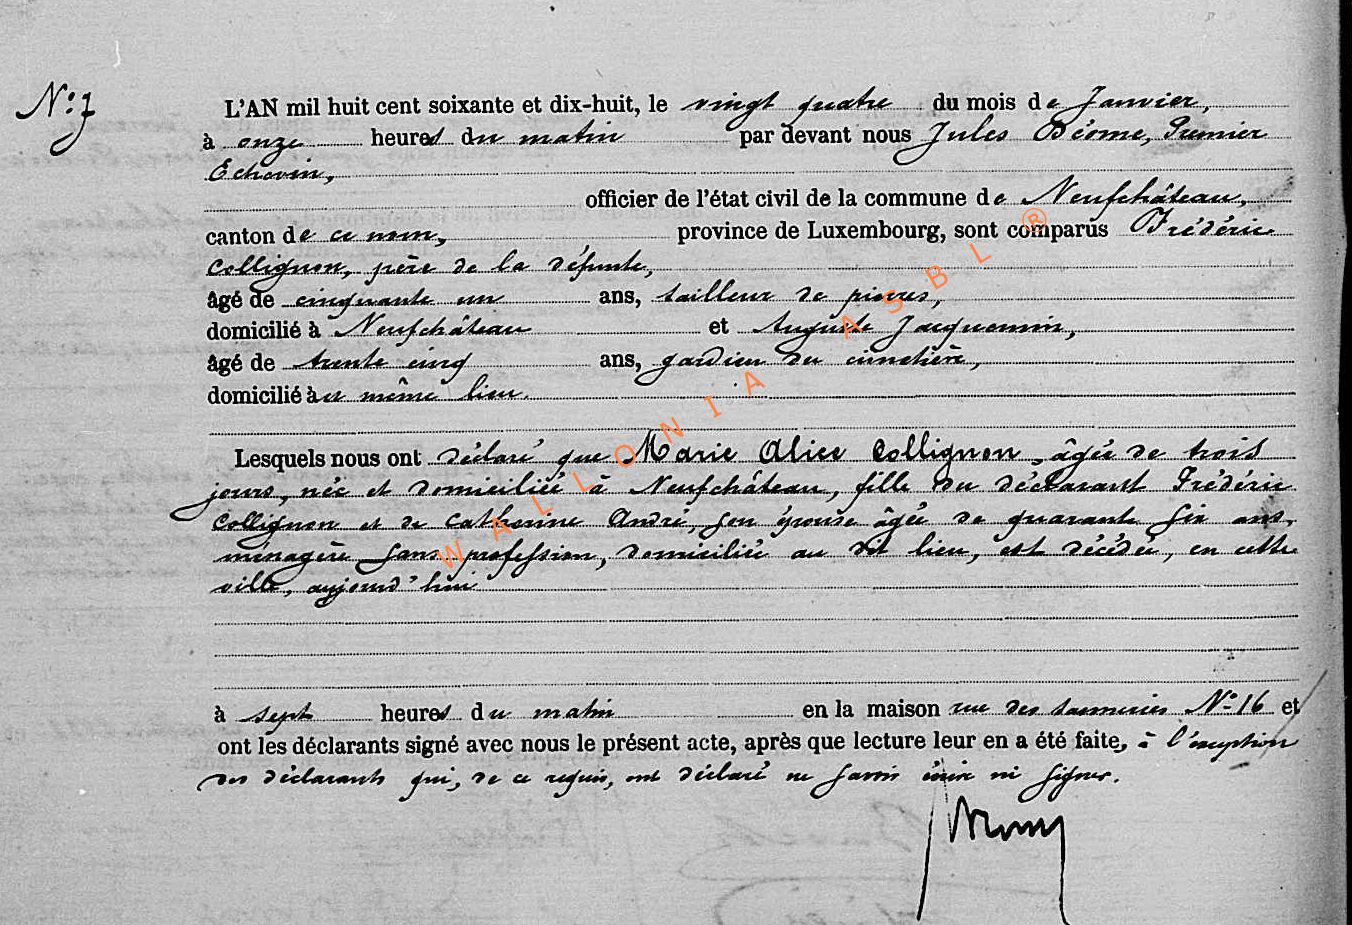 N° 7
L'AN mil huit cent soixante et dix-huit, le vingt quatre du mois de Janvier,
à onze heures du matin par devant nous Jules Déome, Premier
Echevin,
officier de l'état civil de la commune de Neufchâteau,
canton de ce nom, province de Luxembourg, sont comparus Frédéric
Collignon, père de la défunte,
âgé de cinquante un ans, tailleur de pierres,
domicilié à Neufchâteau et Auguste Jacquemin,
âgé de trente cinq ans, gardien du cimetière,
domicilié au même lieu.
Lesquels nous ont déclaré que Marie Alice Collignon, âgée de trois
jours, née et domiciliée à Neufchâteau, fille du déclarant Frédéric
Collignon et de Catherine André, son épouse âgée de quarante six ans,
ménagère sans profession, domiciliée au dit lieu, est décédée, en cette
ville, aujourd'hui
à sept heures du matin en la maison rue des tanneries N° 16 et
ont les déclarants signé avec nous le présent acte, après que lecture leur en a été faite, à l'exception
des déclarants qui, de ce requis, ont déclaré ne savoir écrire ni signer.
WALLONIA ASBL ®